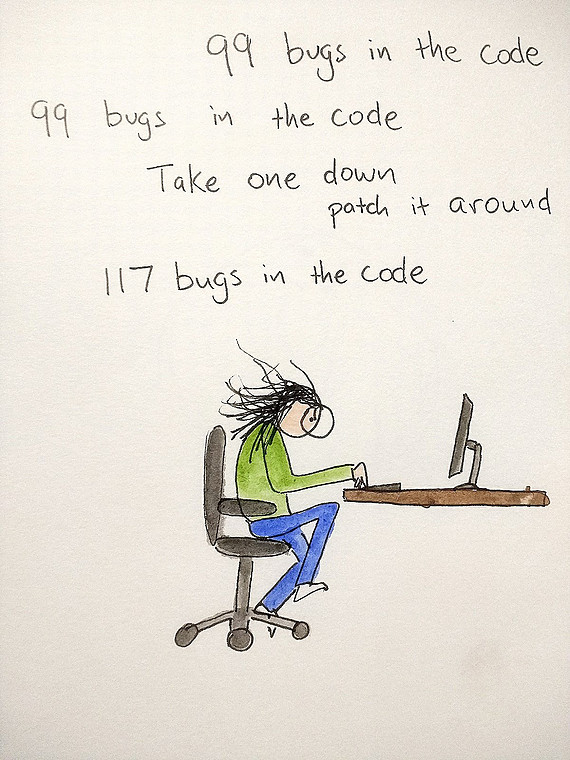 99 bugs in the code
99 bugs in the code
Take one down
patch it around
117 bugs in the code